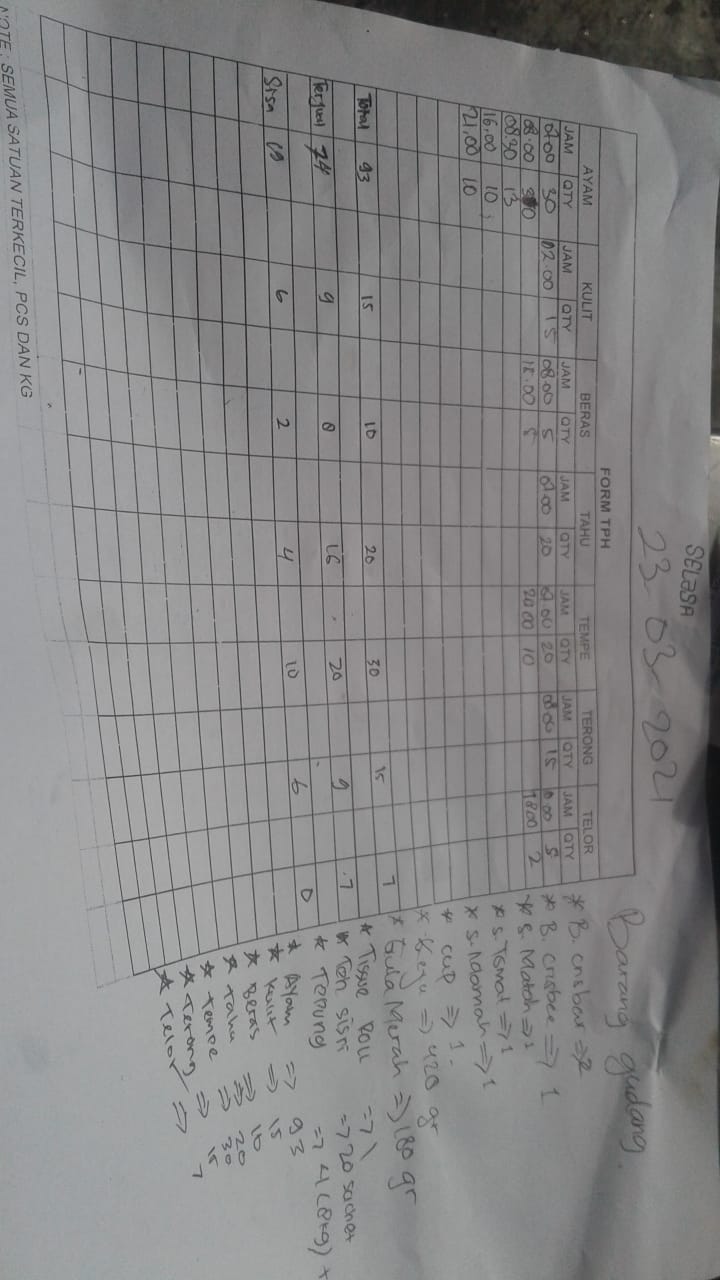 SELASA
23-03-2021
FORM TPH
AYAM KULIT BERAS TAHU TEMPE TERONG TELOR
JAM QTY JAM QTY JAM QTY JAM QTY JAM QTY JAM QTY JAM QTY
30 02.00 15 08.00 5 20 20 08.00 15 5
08.00 18.00 5 20.00 10 1800 2
08.30 13
16.00 10
21.00 10
Total 93 15 10 20 30 15 7
Terjual 74 9 8 16 20 9 7
Sisa 19 6 2 4 10 6 0
NOTE : SEMUA SATUAN TERKECIL, PCS DAN KG
Barang gudang.
* B. crisbar => 2
* B. crisbee => 1
* S. Matah => 1
* S. Tomat => 1
* S. => 1
* cup => 1.
* Keju => 420 gr
* Gula Merah => 180 gr
* Tissue Roll => 1
* Teh sisri => 20 sachet
* Tepung => 4 (8kg) +
* Ayam => 93
* Kulit => 15
* Beras => 10
* Tahu => 20
* Tempe => 30
* Terong => 15
* Telor => 7